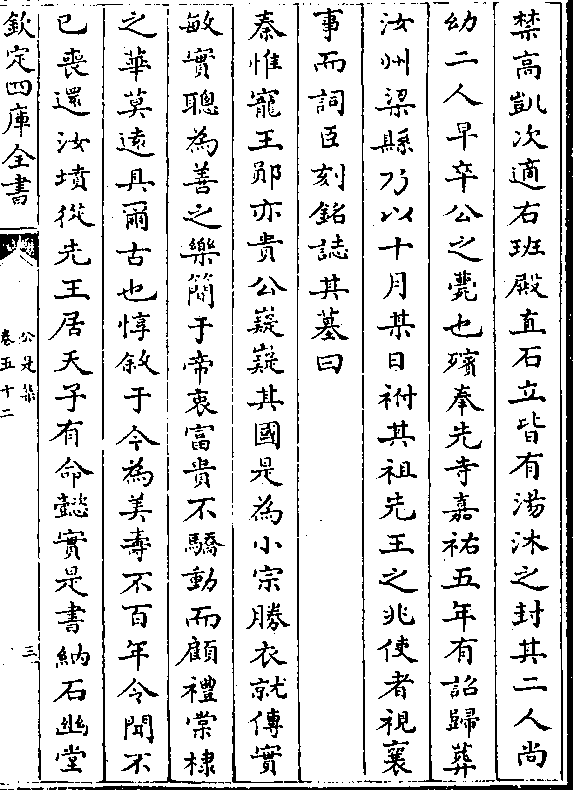 禁高凱次適右班殿直石立皆有湯沐之封其二人尚
幼二人早卒公之薨也殯奉先寺嘉祐五年有詔歸葬
汝州梁縣乃以十月某日祔其祖先王之兆使者視襄
事而詞臣刻銘誌其墓曰
秦惟寵王鄖亦貴公嶷嶷其國是為小宗勝衣就傅實
敏實聰為善之樂簡于帝衷富貴不驕動而顧禮棠棣
之華莫遠具爾古也惇敘于今為美壽不百年令聞不
已喪還汝墳從先王居天子有命懿實是書納石幽堂
欽定四庫全書
公是集
卷五十二
三